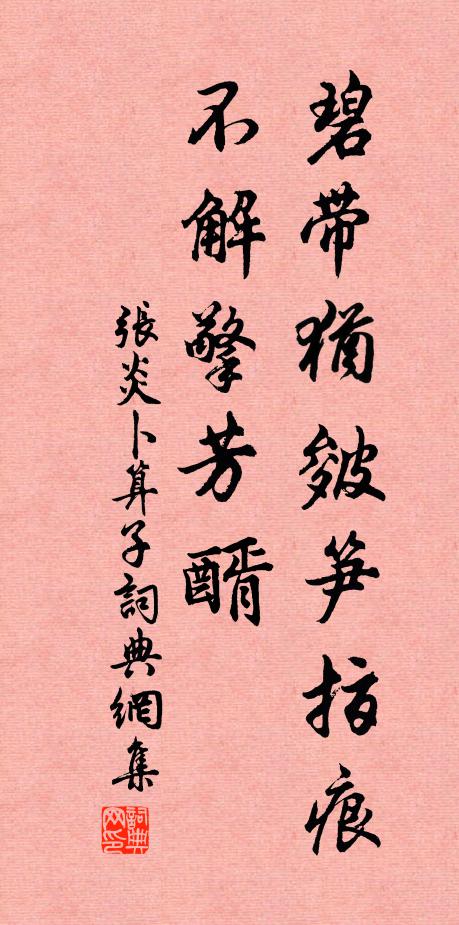 碧帶猶皴笋指痕
不解擎芳醑
張炎卜算子詞典網集
詞典网印